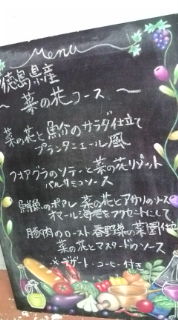 Menu
徳島県産
～ 菜の花コース ～
菜の花と魚介のサラダ仕立て
プランタニエール風
フォアグラのソテーと菜の花リゾット
バルサミコソース
鮮魚のポアレ 菜の花とアサリのソース
オマール海老をアクセントにして
豚肉のロースト 春野菜の菜園仕立
菜の花とマスタードのソース
※デザート・コーヒー付き